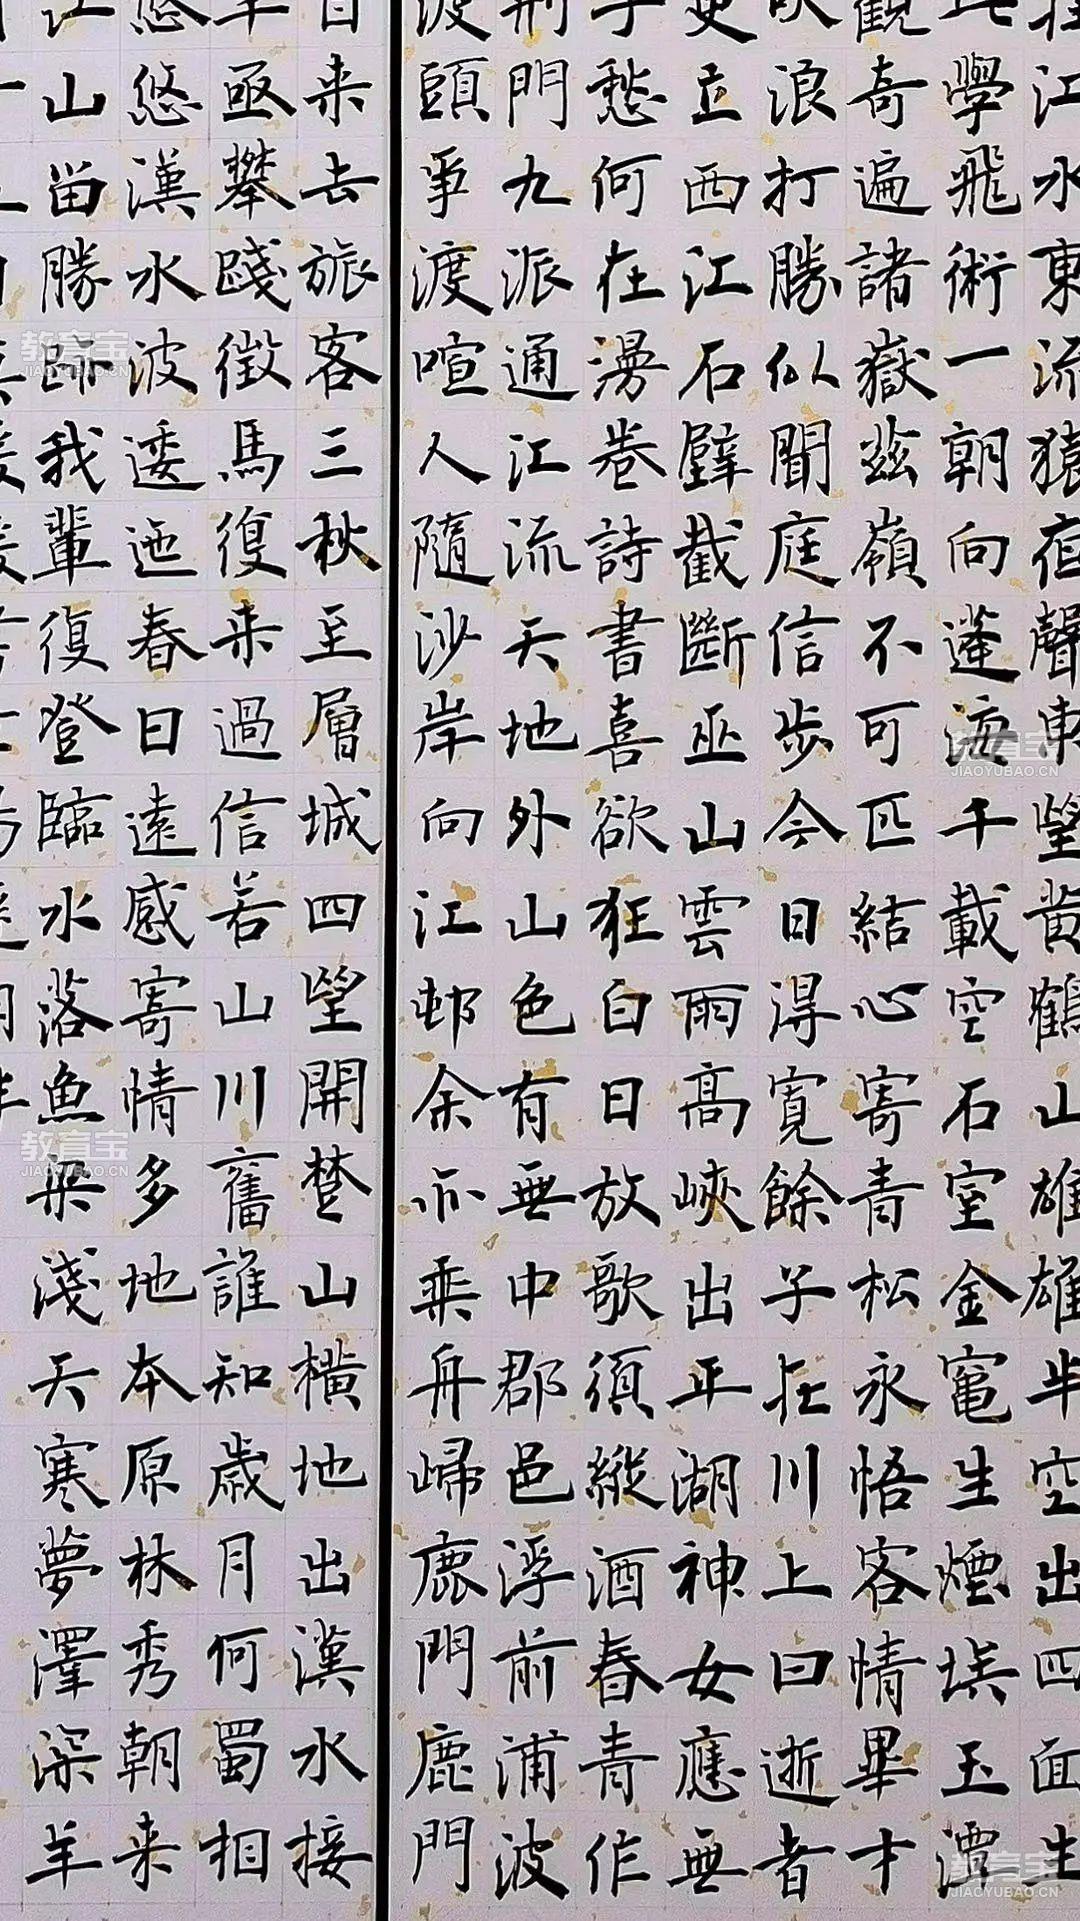 江水東流猿夜聲東望黃鶴山雄雄半空出四面生
學飛術一朝向蓬海千載空石室金竈生煙埃玉潭
觀奇遍諸嶽茲嶺不可匹結心寄青松永悟客情畢才
吹浪打勝似閒庭信步今日得寬餘子在川上曰逝者
更立西江石壁截斷巫山雲雨高峽出平湖神女應無
子愁何在漫卷詩書喜欲狂白日放歌須縱酒春青作
荆門九派通江流天地外山色有無中郡邑浮前浦波
渡頭爭渡喧人隨沙岸向江邨余亦乘舟歸鹿門鹿門
日来去旅客三秋至層城四望開楚山橫地出漢水接
年亟攀踐徵馬復来過信若山川舊誰知歲月何蜀相
悠悠漢水波逶迤春日遠感寄情多地本原林秀朝来
江山留勝跡我輩復登臨水落魚梁淺天寒夢澤深羊
教育宝
JIAOYUBAO.CN
教育宝
JIAOYUBAO.CN
教育宝
JIAOYUBAO.CN
教育宝
JIAOYUBAO.CN